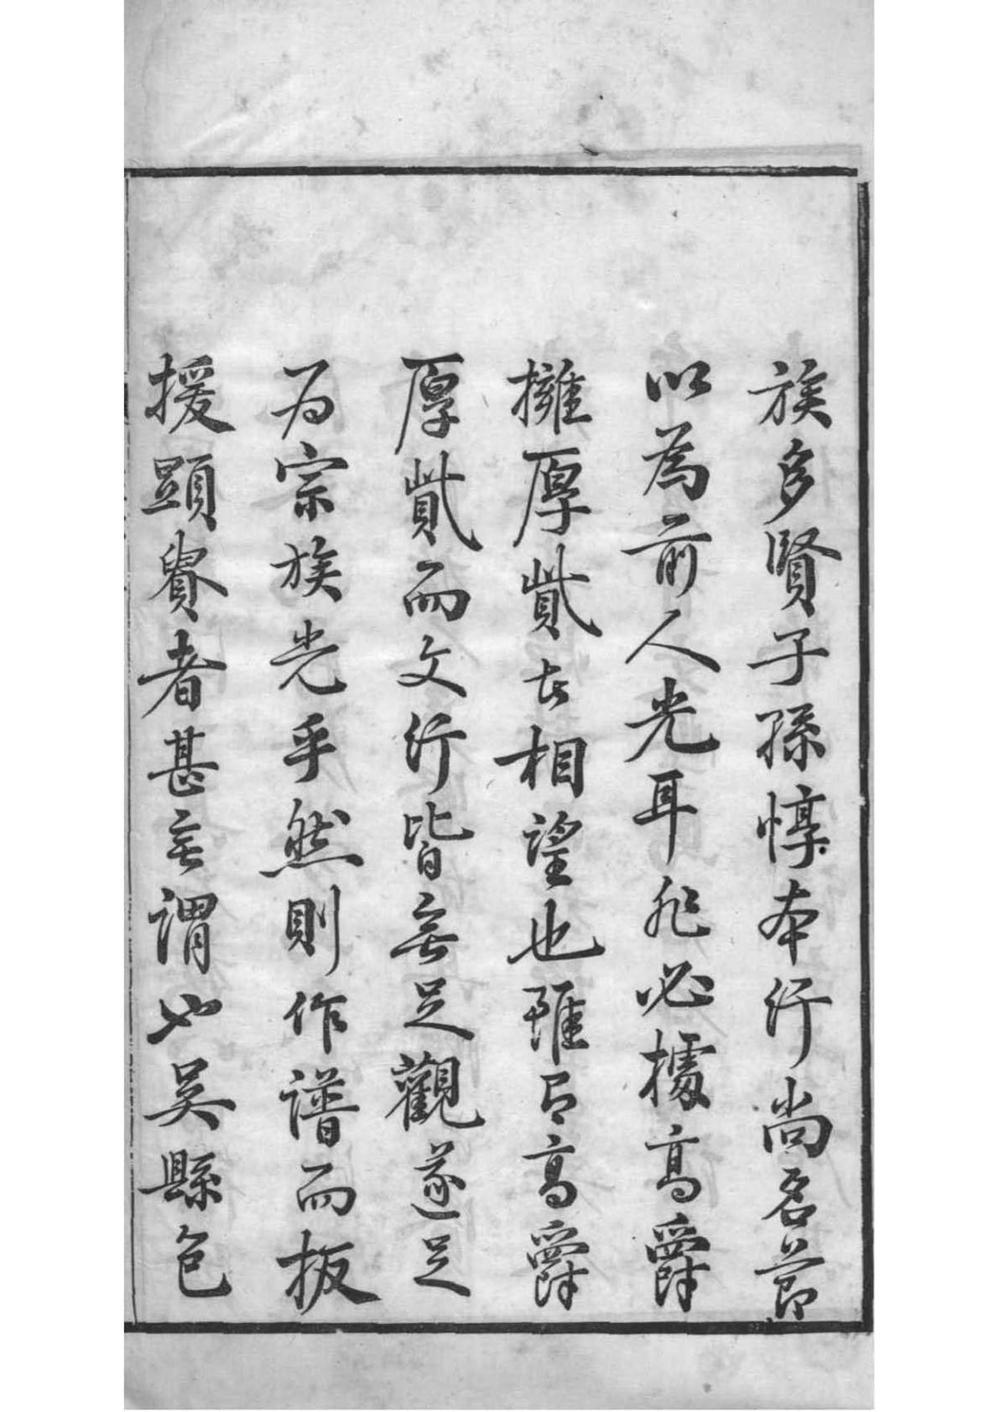 族多賢子孫惇本行尚名節
以為前人光耳非必據高爵
擁厚貲古相望也雖有高爵
厚貲而文行皆無足觀遂足
为宗族光乎然則作譜而扳
援顯貴者甚無謂也吳縣包